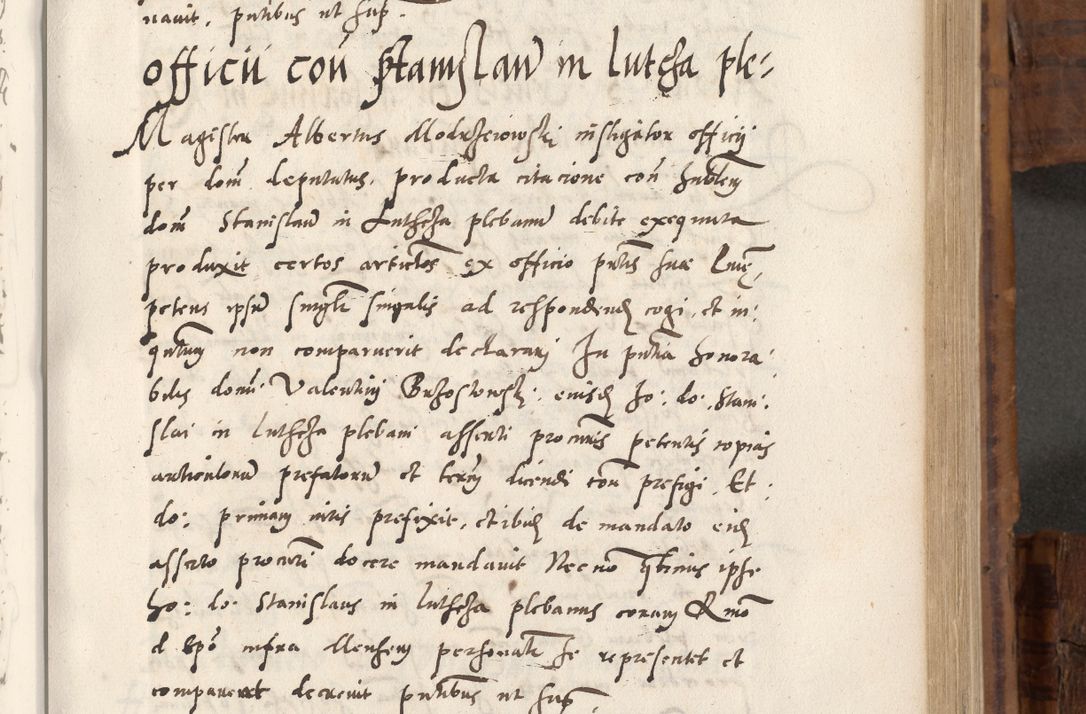 nauit, pntibus ut sup.
officii con Stanislau in lutcza ple-
Magister Albertus Modrzeiowski instigator officij
per dom deputatus, producta citacione con hnblem
dom Stanislau in Lutheza plebanu debite exequuta
produxit certos articlos ex officio pntis suae
petens ipsu singulis ad respondend cogi, et in:
non comparuerit declarari In pntia honora:
bilis domi Valentini Brzostowski. eiusd ho: do. Stani:
slai in lutheza plebani asserti procuris petentis copias
articuloru prefatoru et termi dicendi con prefigi. Et
do: primam iuris prefixit, et ibid de mandato eid
asserto procuri docere mandauit Nec no ipse
ho: do. Stanislaus in lutheza plebanus coram Rmo
d Epo infra Mensem personali se representet et
compareat decreuit pntibus ut sup.